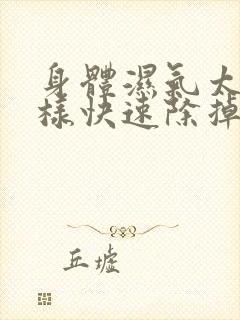 身體濕氣太
樣快速除掉
丘墟